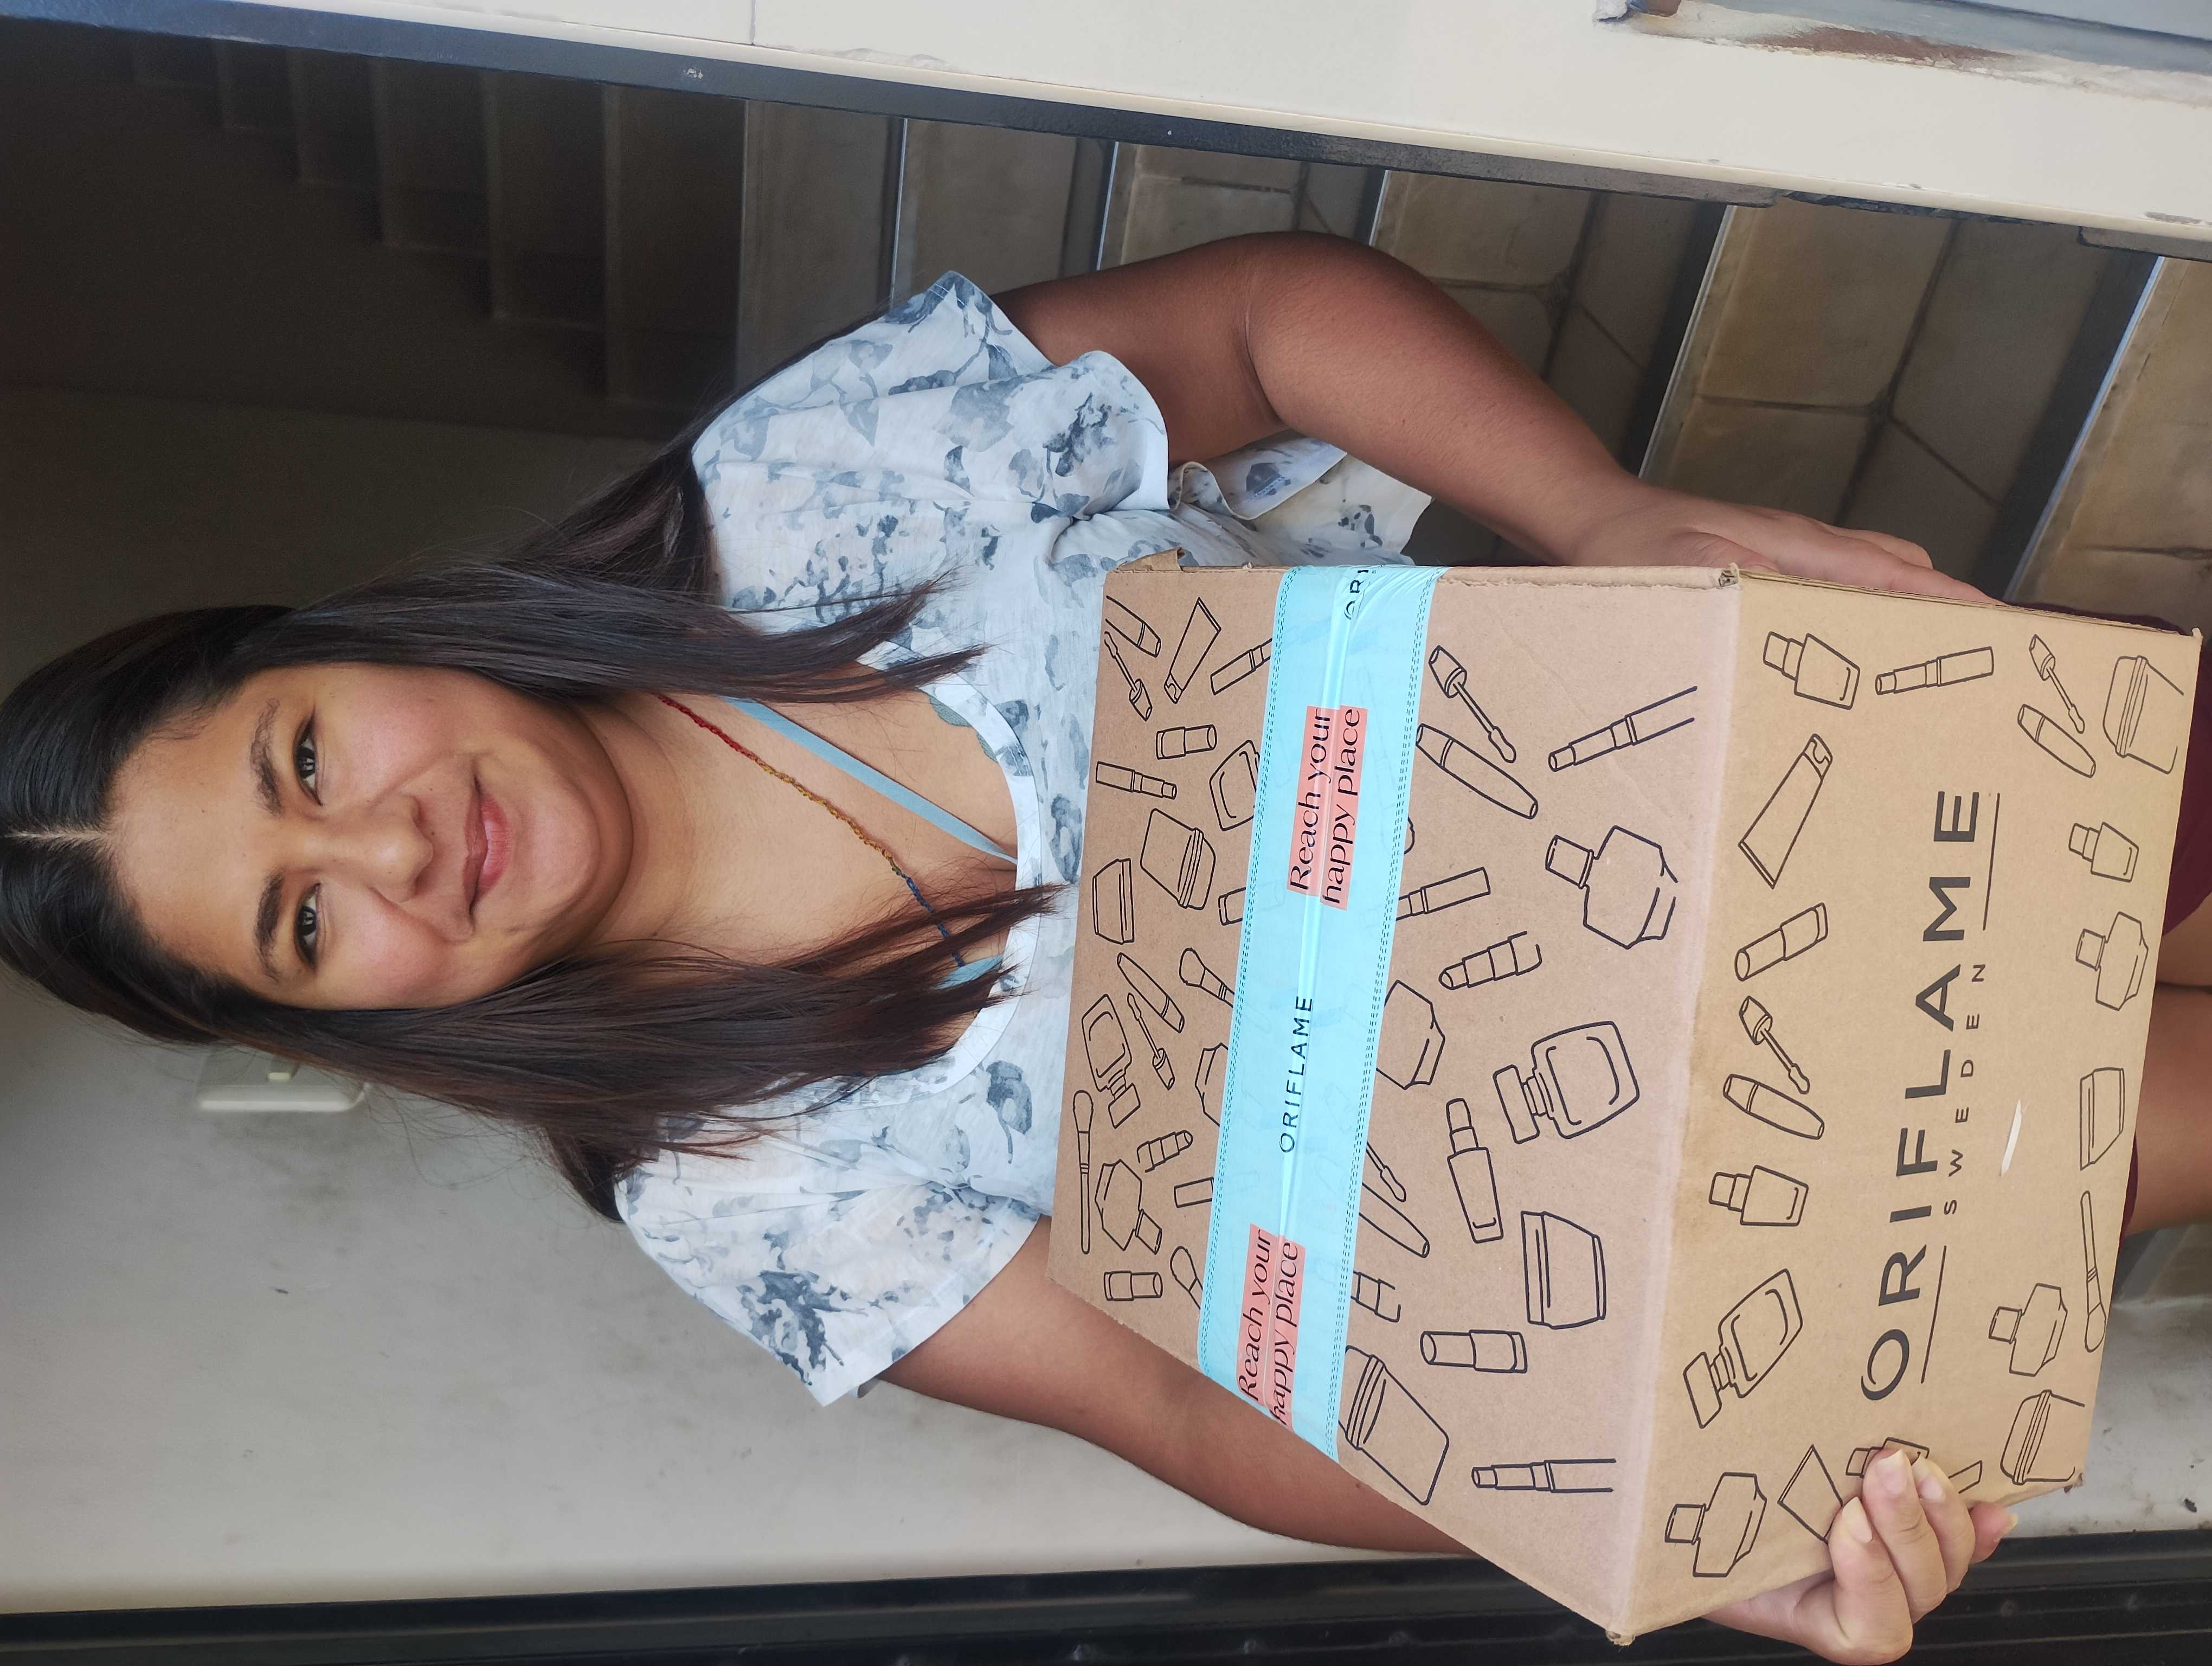 Reach your
happy place
ORIFLAME
Reach your
happy place
ORIFLAME
SWEDEN